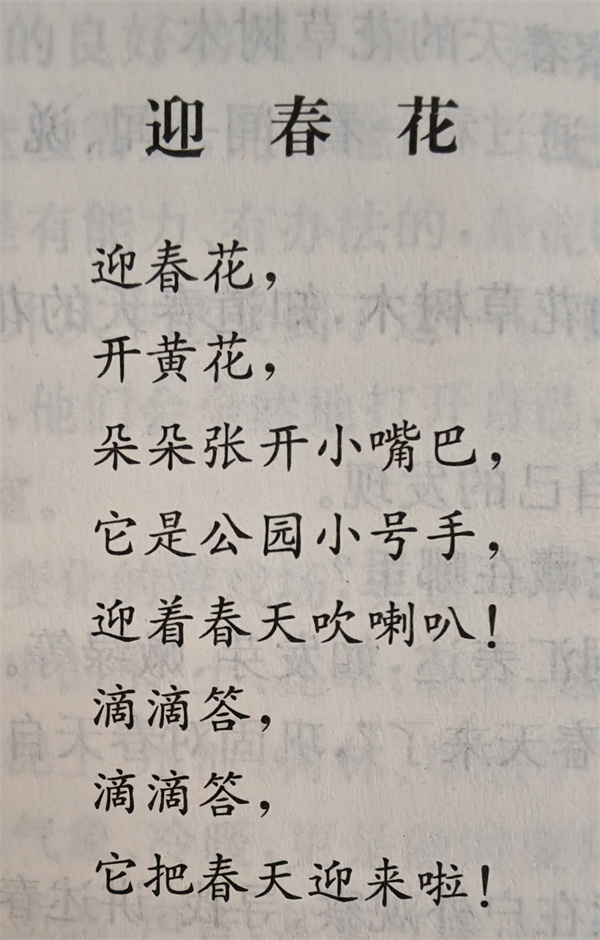 迎春花
迎春花，
开黄花，
朵朵张开小嘴巴，
它是公园小号手，
迎着春天吹喇叭！
滴滴答，
滴滴答，
它把春天迎来啦！